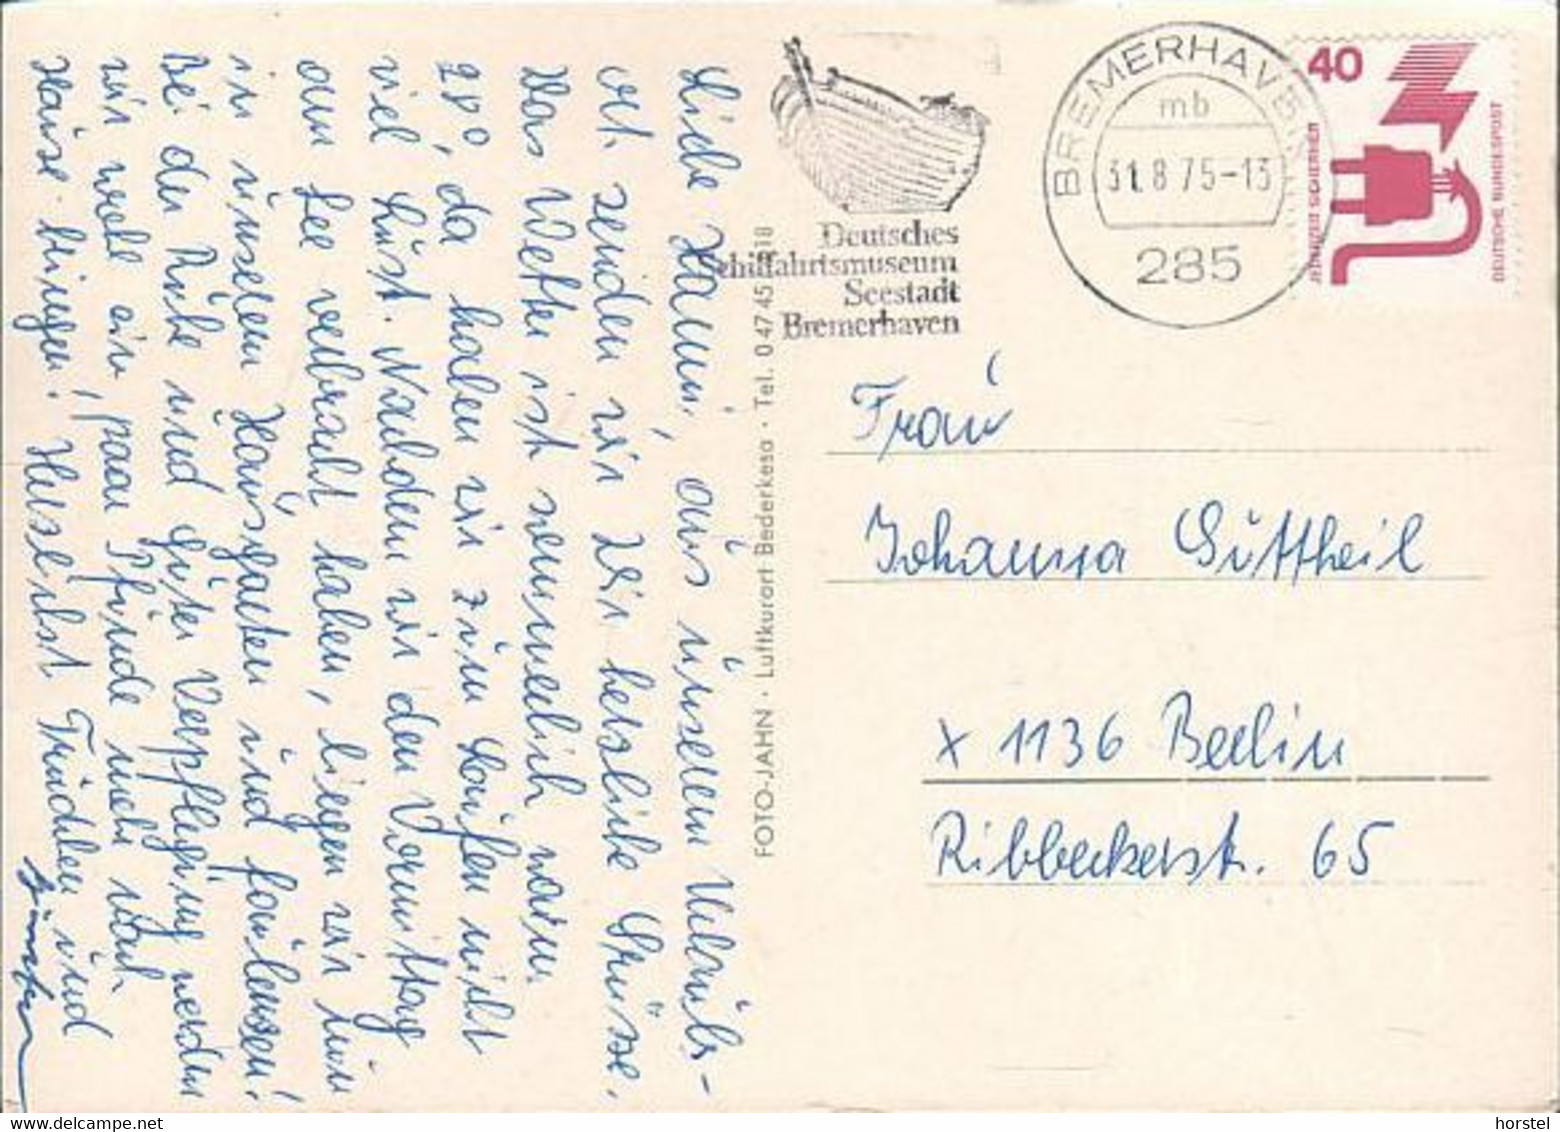 Liebe Hanni, aus unserem Urlaubs-
ort senden wir Dir herzliche Grüsse.
Das Wetter ist ziemlich warm
28°, da haben wir zum Laufen nicht
viel Lust. Nachdem wir den Vormittag
am See verbracht haben, liegen wir nun
in unserem Hausgarten und faulenzen!
Bei der Ruhe und guten Verpflegung werden
wir wohl ein paar Pfunde mehr nach
Hause bringen! Herzlichst Trudchen und
Günter
FOTO-JAHN · Luftkurort Bederkesa · Tel. 0 47 45 /
Deutsches
Schiffahrtsmuseum
Seestadt
Bremerhaven
BREMERHAVEN
mb
31.8.75-13
285
40
JEDERZEIT SICHERHEIT
DEUTSCHE BUNDESPOST
Frau
Johanna Guttheil
X 1136 Berlin
Ribbeckerstr. 65
horstel